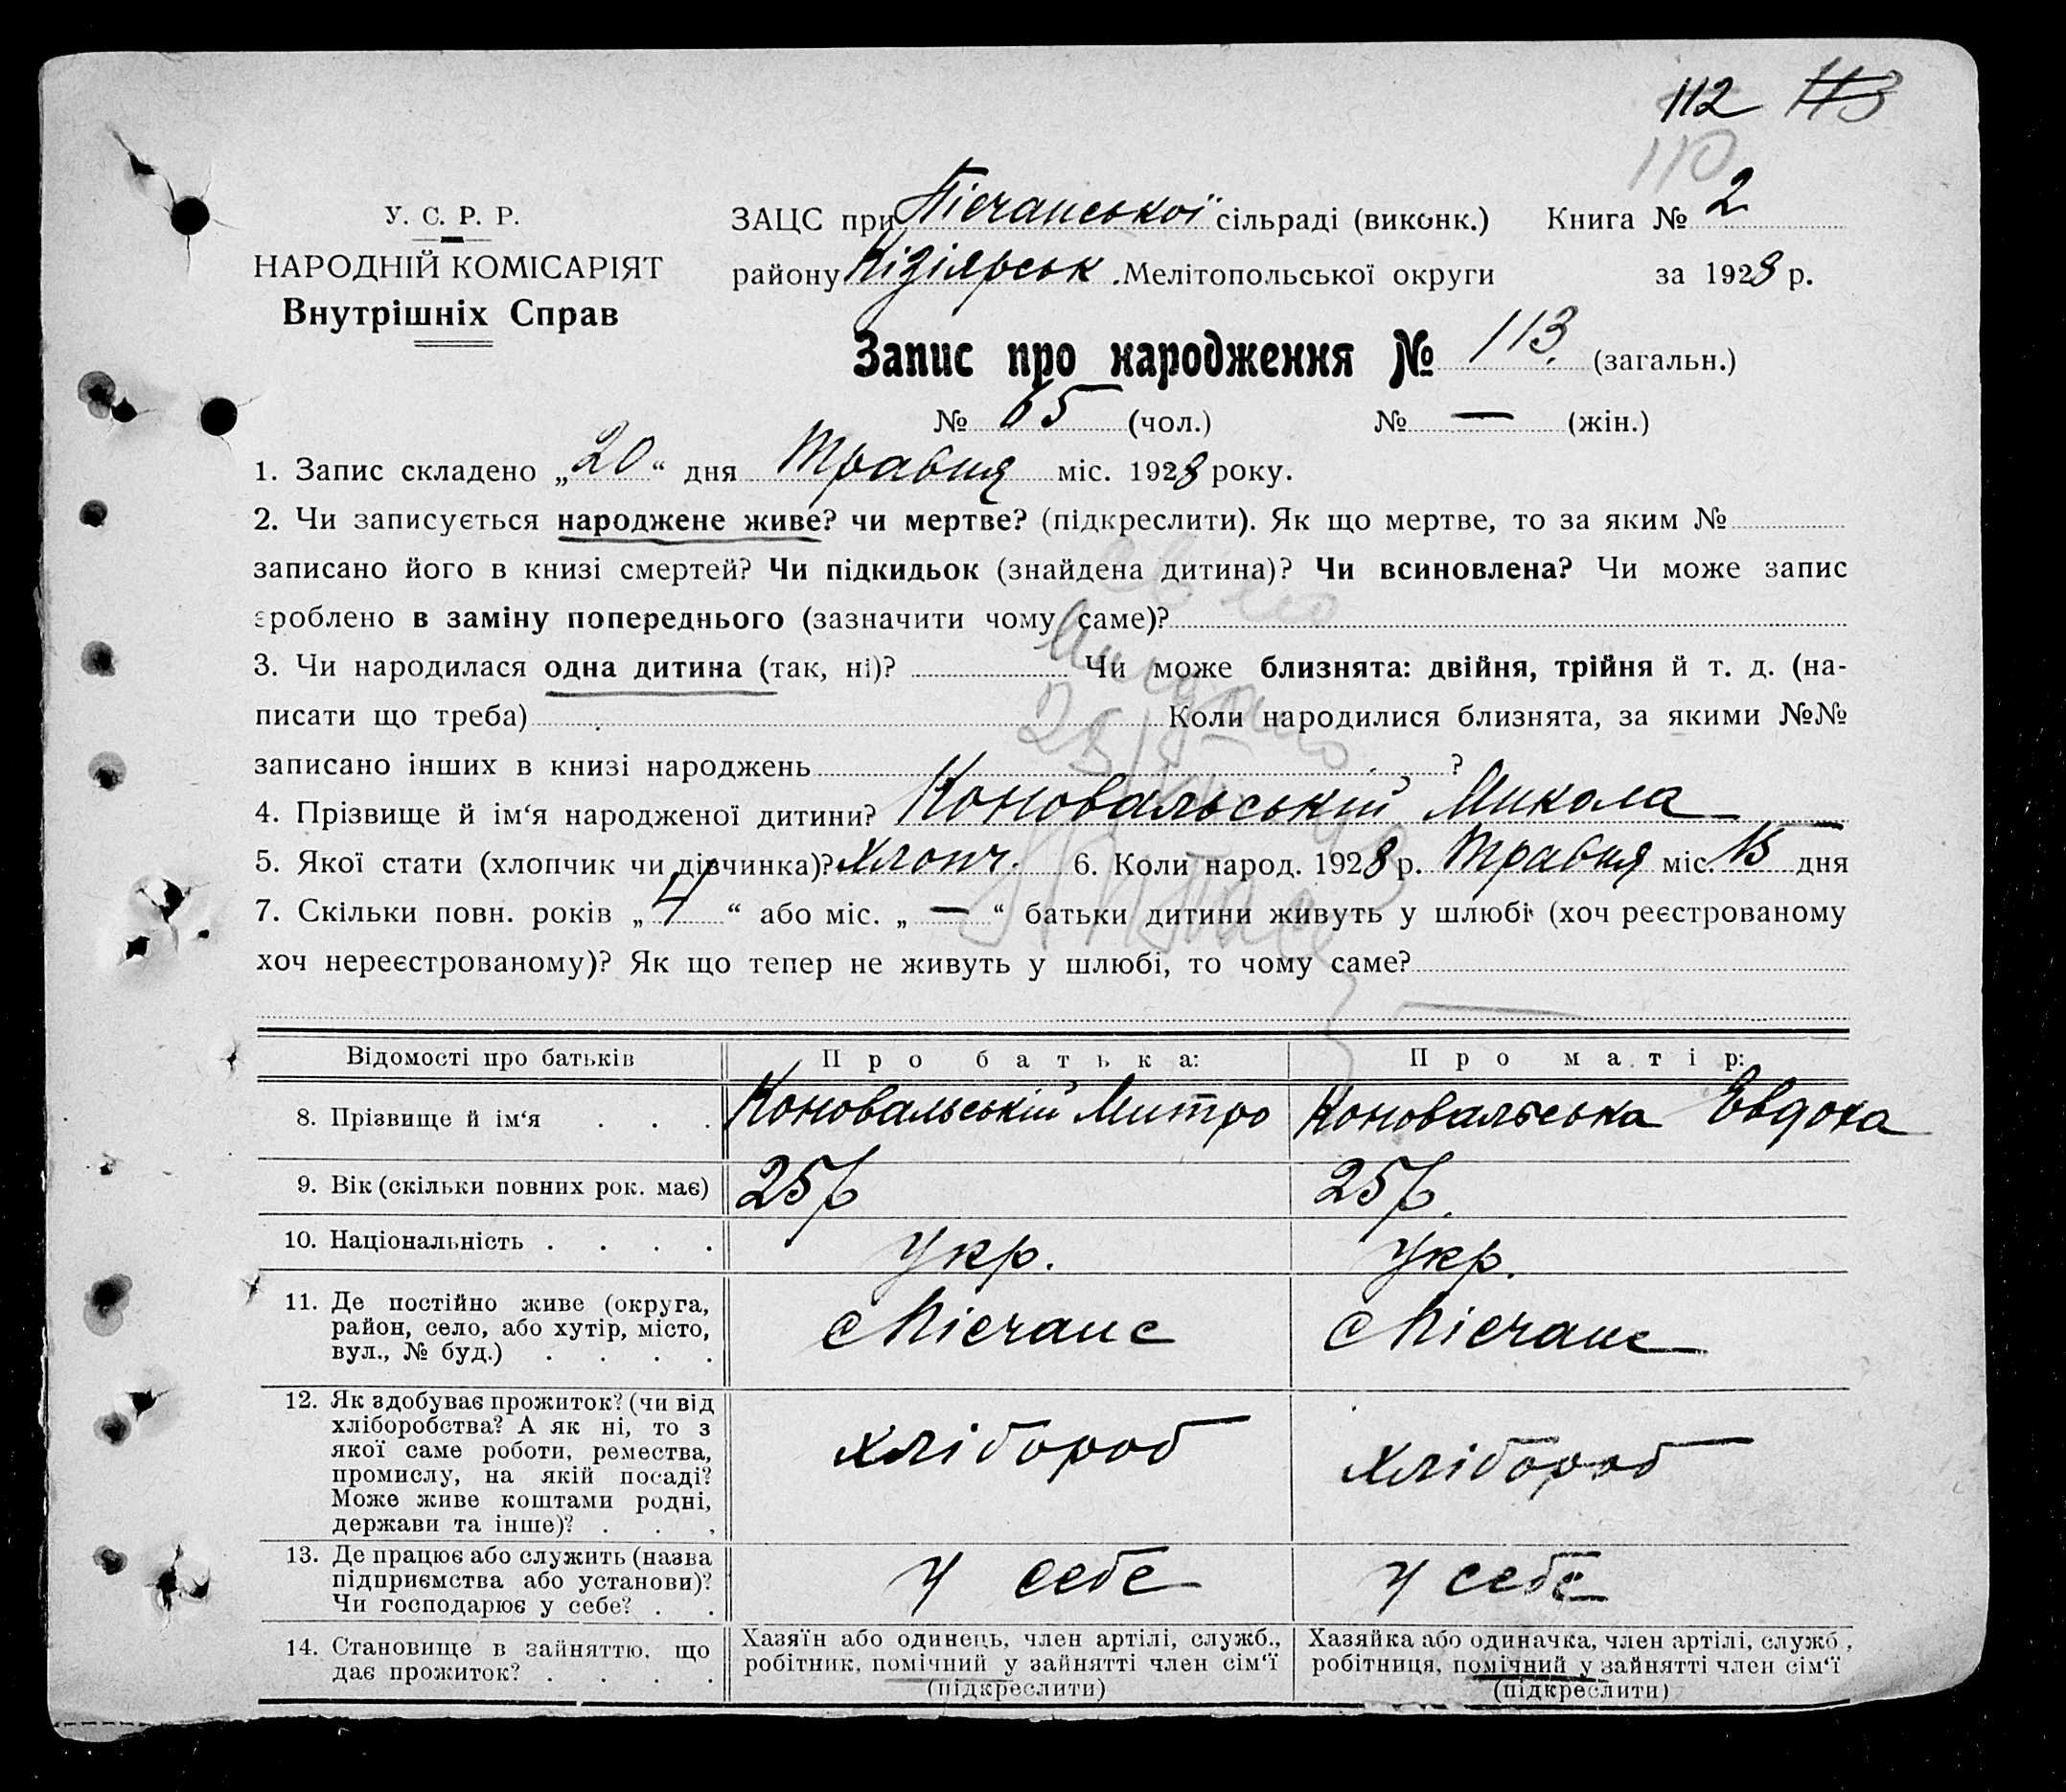 112 113
110
У. С. Р. Р.
НАРОДНІЙ КОМІСАРІЯТ
Внутрішніх Справ
ЗАЦС при Пісчанської сільраді (виконк.) Книга № 2
району Кізіярськ. Мелітопольської округи за 1928 р.
Запис про народження № 113. (загальн.)
№ 65 (чол.) № — (жін.)
1. Запис складено „20“ дня Травня міс. 1928 року.
2. Чи записується народжене живе? чи мертве? (підкреслити). Як що мертве, то за яким №
записано його в книзі смертей? Чи підкидьок (знайдена дитина)? Чи всиновлена? Чи може запис
зроблено в заміну попереднього (зазначити чому саме)?
3. Чи народилася одна дитина (так, ні)? Чи може близнята: двійня, трійня й т. д. (на-
писати що треба) Коли народилися близнята, за якими №№
записано інших в книзі народжень ?
4. Прізвище й ім‘я народженої дитини? Коновальській Микола
5. Якої стати (хлопчик чи дівчинка)? хлопч. 6. Коли народ. 1928 р. Травня міс. 15 дня
7. Скільки повн. років „4“ або міс. „—“ батьки дитини живуть у шлюбі (хоч реєстрованому
хоч нереєстрованому)? Як що тепер не живуть у шлюбі, то чому саме?
Відомості про батьків Про батька: Про матір:
8. Прізвище й ім‘я . . . Коновальській Митро Коновальська Евдока
9. Вік (скільки повних рок. має) 25 р 25 р.
10. Національність . . . . Укр. Укр.
11. Де постійно живе (округа,
район, село, або хутір, місто,
вул., № буд.) . . . .
с Пісчане с Пісчане
12. Як здобуває прожиток? (чи від
хліборобства? А як ні, то з
якої саме роботи, ремества,
промислу, на якій посаді?
Може живе коштами родні,
держави та інше)? . . .
хлібороб хлібороб
13. Де працює або служить (назва
підприємства або установи)?
Чи господарює у себе? . .
у себе у себе
14. Становище в зайняттю, що
дає прожиток? . . . .
Хазяїн або одинець, член артілі, служб.,
робітник, помічний у зайнятті член сім‘ї
(підкреслити)
Хазяйка або одиначка, член артілі, служб.,
робітниця, помічний у зайнятті член сім‘ї
(підкреслити)